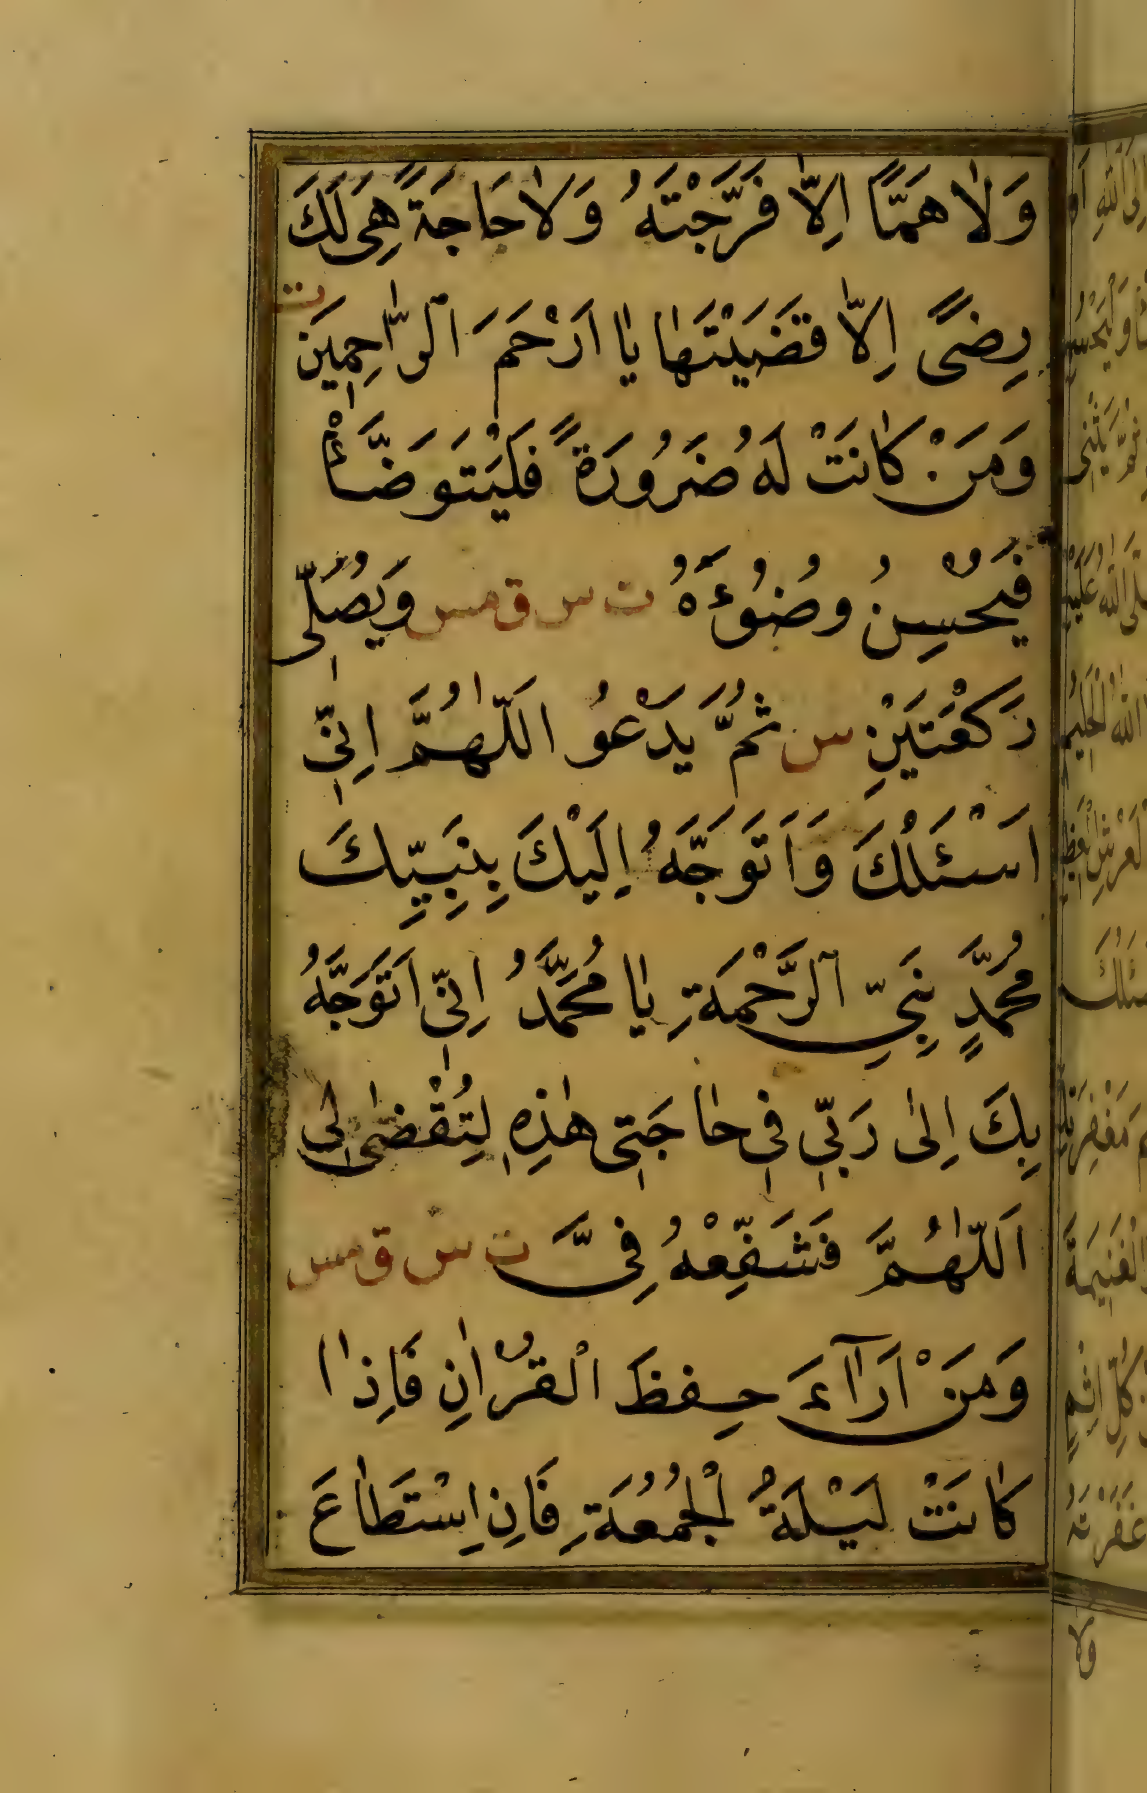 وَلَا هَمًّا اِلَّا فَرَّجْتَهُ وَلَا حَاجَةً هِىَ لَكَ
رِضىً اِلَّا قَضَيْتَهَا يَا اَرْحَمَ الرَّاحِمِينَ ت
وَمَنْ كَانَتْ لَهُ ضَرُورَةً فَلْيَتَوَضَّأْ
فَيُحْسِنُ وُضُوءَهُ ت س ق مس وَيُصَلِّى
رَكْعَتَيْنِ س ثُمَّ يَدْعُو اللّٰهُمَّ اِنِّى
اَسْئَلُكَ وَاَتَوَجَّهُ اِلَيْكَ بِنَبِيِّكَ
مُحَمَّدٍ نَبِيِّ الرَّحْمَةِ يَا مُحَمَّدُ اِنِّى اَتَوَجَّهُ
بِكَ اِلٰى رَبِّى فِى حَاجَتِى هٰذِهِ لِتُقْضٰى لِى
اَللّٰهُمَّ فَشَفِّعْهُ فِىَّ ت س ق مس
وَمَنْ اَرَاۤءَ حِفظَ الْقُرْاٰنِ فَاِذَا
كَانَتْ لَيْلَةُ الْجُمُعَةِ فَاِنِ اِسْتَطَاعَ
ولا